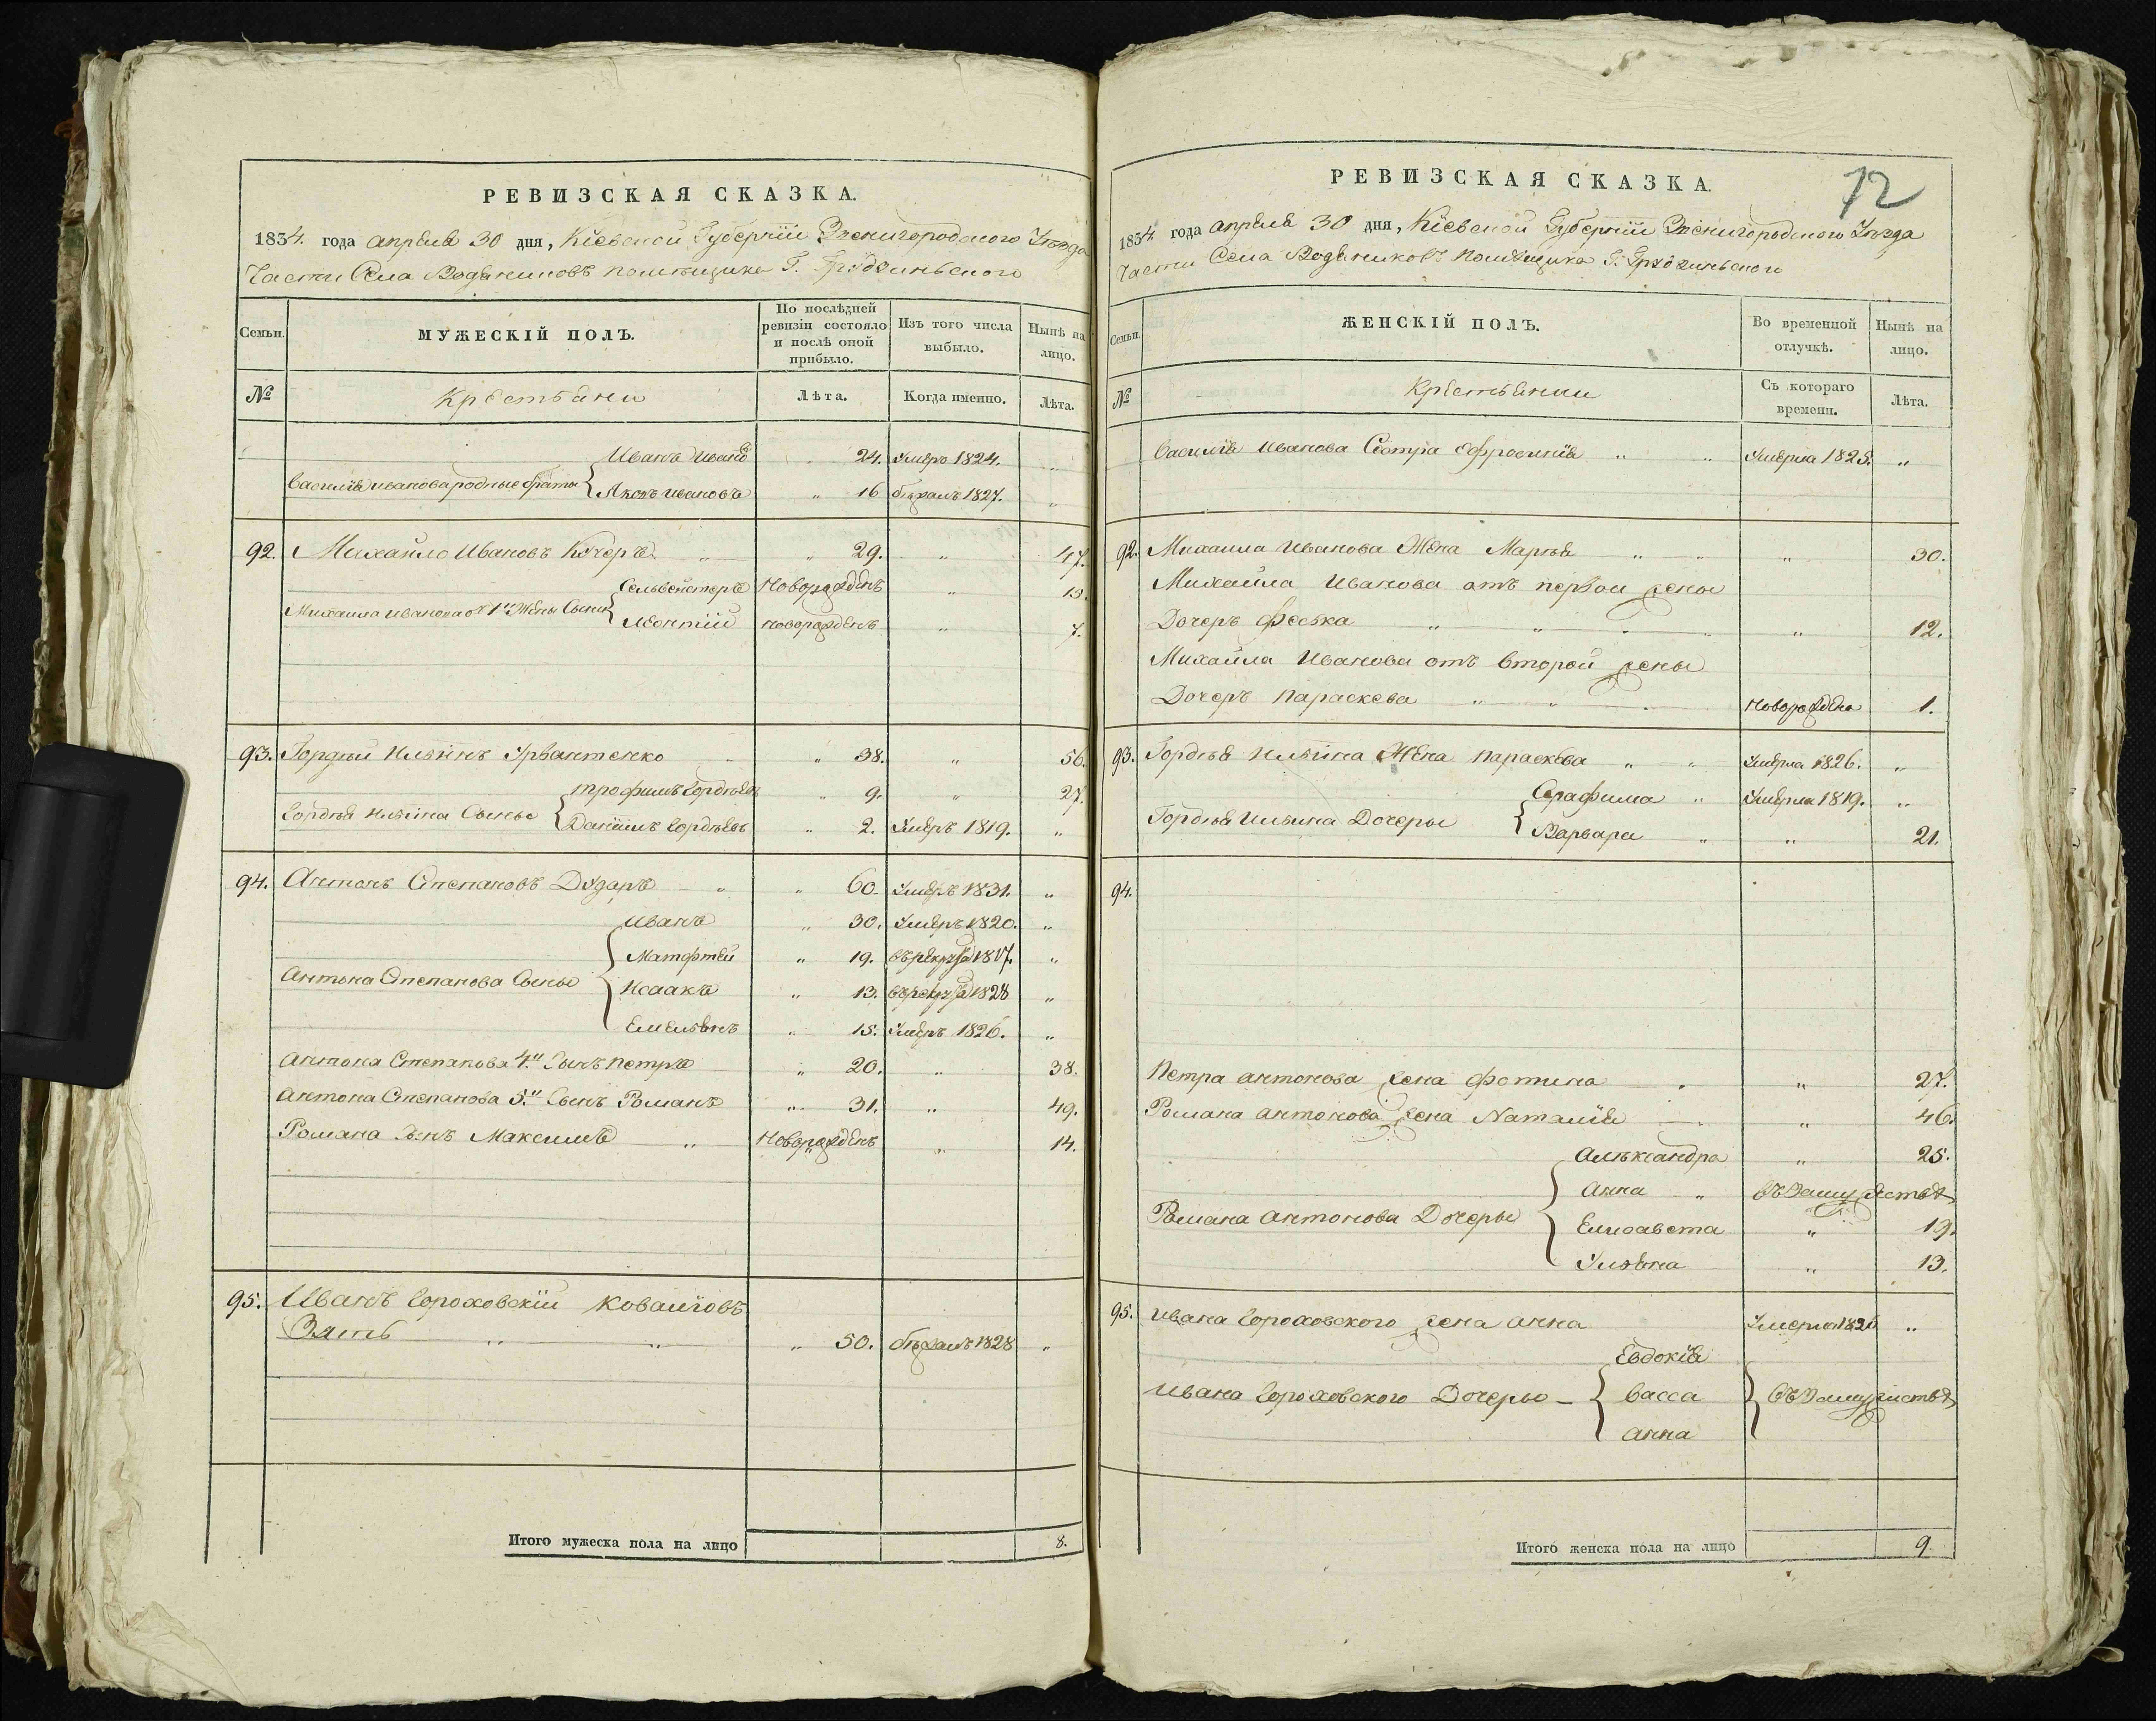 РЕВИЗСКАЯ СКАЗКА.
1834. года апреля 30 дня, Кіевской Губерніи Звенигородского Уезда
Части Села Водяниковъ помещика Г.
Семьи.
МУЖЕСКІЙ ПОЛЪ.
По послѣдней ревизіи состояло и послѣ оной прибыло.
Изъ того числа выбыло.
Нынѣ на лицо.
№
Крестьяни
Лѣта.
Когда именно.
Лѣта.
Иванъ Ивановъ " 24. Умеръ 1824. "
Василія Иванова родные братья { Яковъ Ивановъ " 16 бежалъ 1827. "
92. Михайло Ивановъ Кучеръ " " 29. " 47.
Сельвейстеръ Новорожденъ " 13.
Михаила Иванова отъ 1й Жены Сыны { Леонтій новорожденъ " 7.
93. Гордѣй Ильинъ " 38. " 56.
Трофимъ Гордѣевъ " 9. " 27.
Гордѣя Ильина Сыны { Даніилъ Гордѣевъ " 2. Умеръ 1819. "
94. Антонъ Степановъ Дударъ " " 60. Умеръ 1831. "
Иванъ " 30. Умеръ 1820. "
Матфтей " 19. въ рекр. 1817. "
Антона Степанова Сыны { Исаакъ " 13. въ рекр. 1828 "
Емельянъ " 15. Умеръ 1826. "
Антона Степанова 4й Сынъ Петръ " 20. " 38.
Антона Степанова 5й Сынъ Романъ " 31. " 49.
Романа Сынъ Максимъ " Новорожденъ " 14.
95. Иванъ Гороховскій Ковалювъ
Зять " " " 50. бежалъ 1828 "
Итого мужеска пола на лицо 8.
72
РЕВИЗСКАЯ СКАЗКА.
1834. года апреля 30 дня, Кіевской Губерніи Звенигородского Уезда
Части Села Водяниковъ помещика Г.
Семьи.
ЖЕНСКІЙ ПОЛЪ.
Во временной отлучкѣ.
Нынѣ на лицо.
№
Крестьянки
Съ котораго времени.
Лѣта.
Василія Иванова Сестра Ефросинія " " Умерла 1825. "
92. Михаила Иванова Жена Марья " " " 30.
Михайла Иванова отъ первой жены
Дочеръ Феська " " " " " 12.
Михайла Иванова отъ второй жены
Дочеръ Параскева " " " Новорождена 1.
93. Гордѣя Ильина Жена Параскева " " Умерла 1826. "
Серафима " Умерла 1819. "
Гордѣя Ильина Дочеры { Варвара " " 21.
94.
Петра Антонова жена Фотина " " 27.
Романа Антонова жена Наталія " 46.
Алѣксандра " 25.
Анна " въ Замужестве
Романа Антонова Дочеры { Елисавета " 19.
Ульяна " 13.
95. Ивана Гороховского жена Анна Умерла 1820 "
Евдокія
Ивана Гороховского Дочеры - { Васса } въ Замужестве
Анна
Итого женска пола на лицо 9